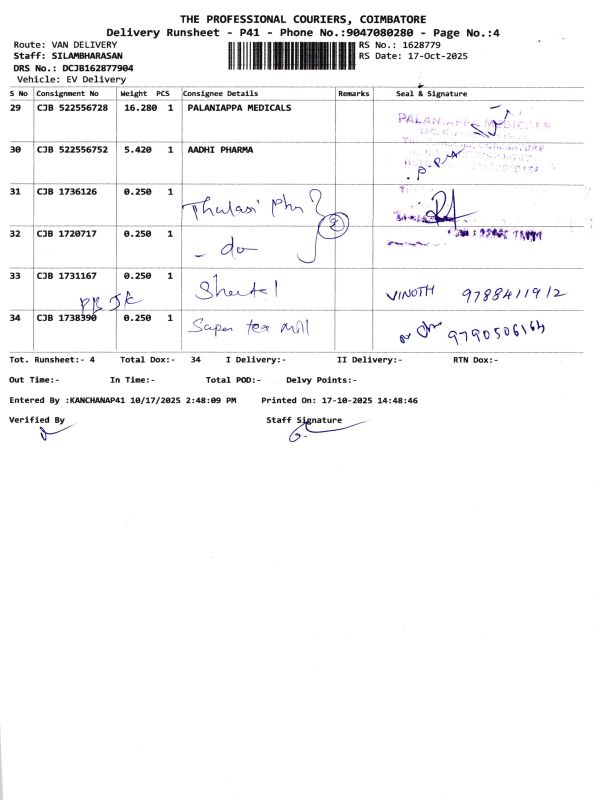 THE PROFESSIONAL COURIERS, COIMBATORE
Delivery Runsheet - P41 - Phone No.:9047080280 - Page No.:4
Route: VAN DELIVERY RS No.: 1628779
Staff: SILAMBHARASAN RS Date: 17-Oct-2025
DRS No.: DCJB162877904
Vehicle: EV Delivery
S No Consignment No Weight PCS Consignee Details Remarks Seal & Signature
29 CJB 522556728 16.280 1 PALANIAPPA MEDICALS PALANIAPPA MEDICALS
30 CJB 522556752 5.420 1 AADHI PHARMA
31 CJB 1736126 0.250 1 Thulasi Phr
2
32 CJB 1720717 0.250 1 - do
33 CJB 1731167 0.250 1 Sheetal VINOTH 9788411912
34 CJB 1738390 0.250 1 Super tex mill 9790506164
Tot. Runsheet:- 4 Total Dox:- 34 I Delivery:- II Delivery:- RTN Dox:-
Out Time:- In Time:- Total POD:- Delvy Points:-
Entered By :KANCHANAP41 10/17/2025 2:48:09 PM Printed On: 17-10-2025 14:48:46
Verified By Staff Signature